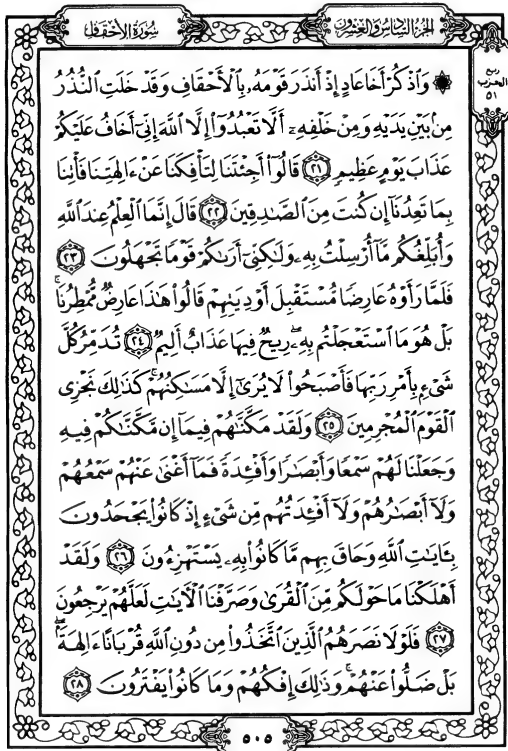 الجزء السادس والعشرون
سورة الأحقاف
ربع
الحزب
٥١
۞ وَاذْكُرْ أَخَا عَادٍ إِذْ أَنذَرَ قَوْمَهُۥ بِالْأَحْقَافِ وَقَدْ خَلَتِ النُّذُرُ
مِنۢ بَيْنِ يَدَيْهِ وَمِنْ خَلْفِهِۦٓ أَلَّا تَعْبُدُوٓا۟ إِلَّا اللَّهَ إِنِّىٓ أَخَافُ عَلَيْكُمْ
عَذَابَ يَوْمٍ عَظِيمٍ ٢١ قَالُوٓا۟ أَجِئْتَنَا لِتَأْفِكَنَا عَنْ ءَالِهَتِنَا فَأْتِنَا
بِمَا تَعِدُنَآ إِن كُنتَ مِنَ الصَّٰدِقِينَ ٢٢ قَالَ إِنَّمَا الْعِلْمُ عِندَ اللَّهِ
وَأُبَلِّغُكُم مَّآ أُرْسِلْتُ بِهِۦ وَلَٰكِنِّىٓ أَرَىٰكُمْ قَوْمًا تَجْهَلُونَ ٢٣
فَلَمَّا رَأَوْهُ عَارِضًا مُّسْتَقْبِلَ أَوْدِيَتِهِمْ قَالُوا۟ هَٰذَا عَارِضٌ مُّمْطِرُنَا ۚ
بَلْ هُوَ مَا اسْتَعْجَلْتُم بِهِۦ ۖ رِيحٌ فِيهَا عَذَابٌ أَلِيمٌ ٢٤ تُدَمِّرُ كُلَّ
شَىْءٍۭ بِأَمْرِ رَبِّهَا فَأَصْبَحُوا۟ لَا يُرَىٰٓ إِلَّا مَسَٰكِنُهُمْ ۚ كَذَٰلِكَ نَجْزِى
الْقَوْمَ الْمُجْرِمِينَ ٢٥ وَلَقَدْ مَكَّنَّٰهُمْ فِيمَآ إِن مَّكَّنَّٰكُمْ فِيهِ
وَجَعَلْنَا لَهُمْ سَمْعًا وَأَبْصَٰرًا وَأَفْـِٔدَةً فَمَآ أَغْنَىٰ عَنْهُمْ سَمْعُهُمْ
وَلَآ أَبْصَٰرُهُمْ وَلَآ أَفْـِٔدَتُهُم مِّن شَىْءٍ إِذْ كَانُوا۟ يَجْحَدُونَ
بِـَٔايَٰتِ اللَّهِ وَحَاقَ بِهِم مَّا كَانُوا۟ بِهِۦ يَسْتَهْزِءُونَ ٢٦ وَلَقَدْ
أَهْلَكْنَا مَا حَوْلَكُم مِّنَ الْقُرَىٰ وَصَرَّفْنَا الْءَايَٰتِ لَعَلَّهُمْ يَرْجِعُونَ
٢٧ فَلَوْلَا نَصَرَهُمُ الَّذِينَ اتَّخَذُوا۟ مِن دُونِ اللَّهِ قُرْبَانًا ءَالِهَةًۢ ۖ
بَلْ ضَلُّوا۟ عَنْهُمْ ۚ وَذَٰلِكَ إِفْكُهُمْ وَمَا كَانُوا۟ يَفْتَرُونَ ٢٨
٥٠٥